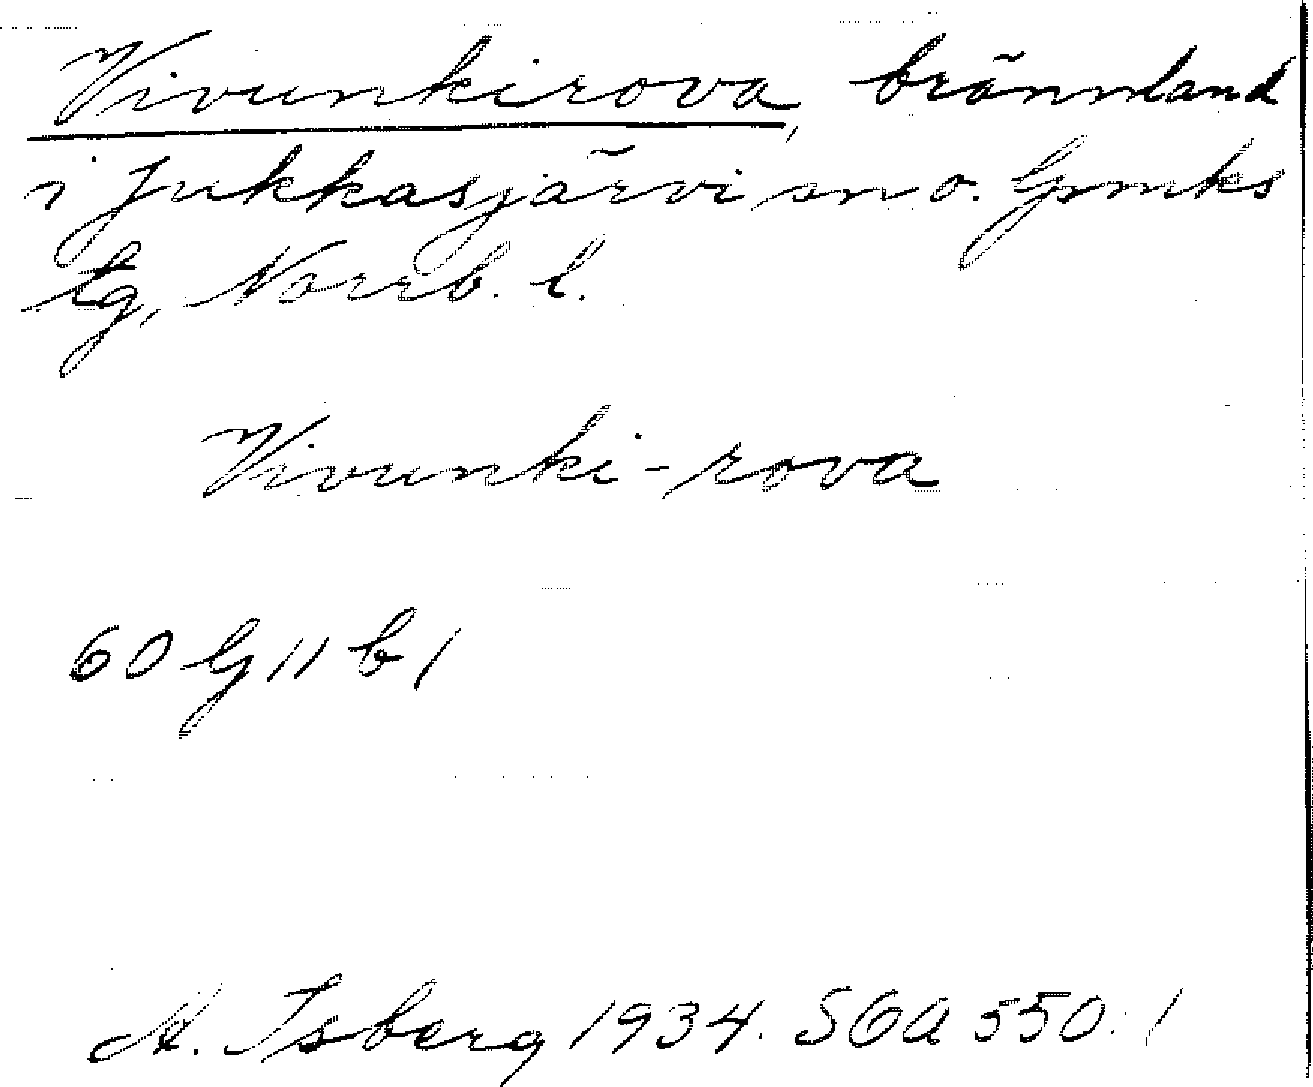 Vivunkirova, brännland
i Jukkasjärvi sn o. Gpmks
tg, Norrb. l.
Vivunki-rova
60 G 11 b 1
A. Isberg 1934. SOA 550:1